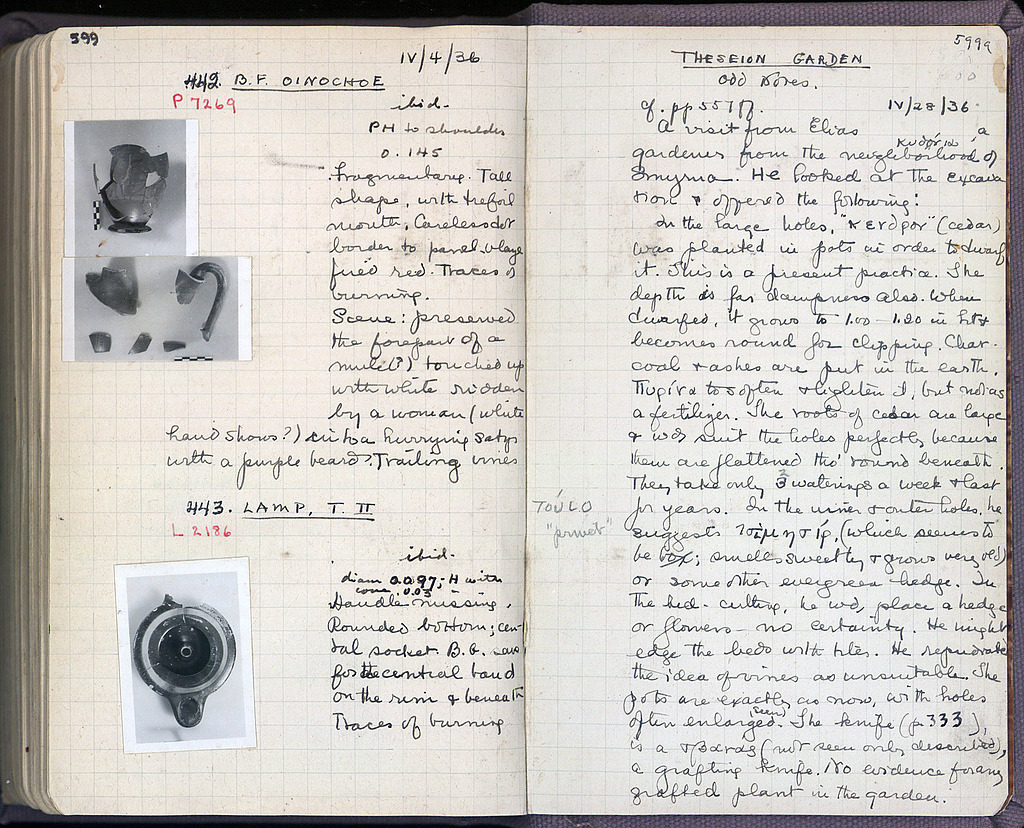 599
IV/4/36
442. B.F. OINOCHOE
P 7269
ibid-
PH to shoulder
0.145
Fragmentary. Tall
shape, with trefoil
mouth. Careless dot
border to panel. Glaze
fired red. Traces of
burning.
Scene: preserved
the forepart of a
mule(?) touched up
with white ridden
by a woman (white
hand shows?) in to a hurrying satyr
with a purple beard?. Trailing vines
443. LAMP, T. II
L 2186
ibid-
diam 0.097; H with
0.03
Handle missing.
Rounded bottom; cen-
tral socket. B.G. save
for the central band
on the rim & beneath
Traces of burning
599a
THESEION GARDEN
Odd Notes.
cf. pp 557 ff. IV/28/36
A visit from Elias a
gardener from the neighborhood of
Smyrna. He looked at the excava
tion & offered the following:
In the large holes, "κένδρος" (cedar)
was planted in pots in order to dwarf
it. This is a present practice. The
depth is for dampness also. When
dwarfed, it grows to 1.00 - 1.20 in ht &
becomes round for clipping. Char-
coal & ashes are put in the earth.
to soften & lighten it, but not as
a fertilizer. The roots of cedar are large
& wd suit the holes perfectly because
them are flattened tho' round beneath.
They take only 2 3 waterings a week & last
for years. In the inner & outer holes, he
suggests (which seems to
be box; smells sweetly & grows very old)
or some other evergreen hedge. In
the bed-cutting, he wd, place a hedge
or flowers - no certainty. He might
edge the beds with tiles. He repudiated
the idea of vines as unsuitable. The
pots are exactly as now, with holes
often enlarged (seen). The knife (p 333),
is a σβανάς (not seen only described),
a grafting knife. No evidence for any
grafted plant in the garden.
"privet"